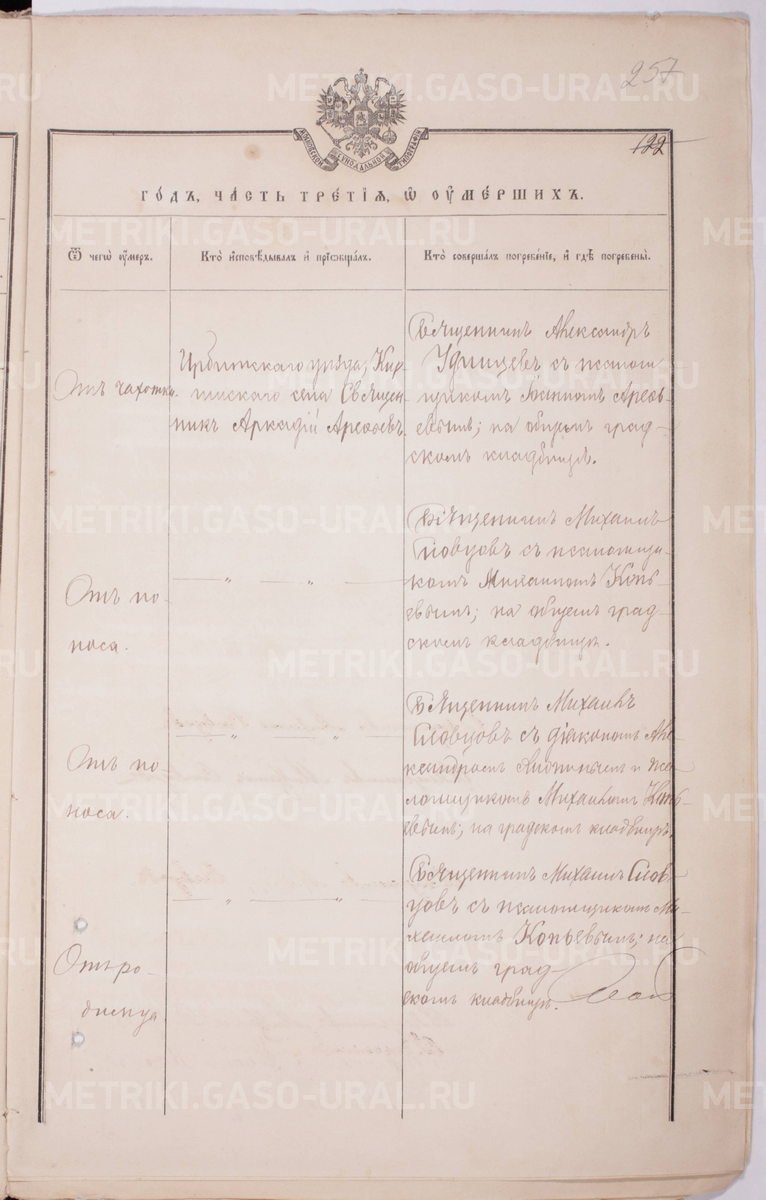 257
122
МОСКОВСКОЙ СѴНОДАЛЬНОЙ ТИПОГРАФІИ
ГО́ДЪ, ЧА́СТЬ ТРЕ́ТІѦ, Ѿ ОУ҆МЕ́РШИХЪ.
Ѿ чегѡ̀ оу҆́меръ.
Кто̀ и҆сповѣ́дывалъ и҆ прїѡбща́лъ.
Кто̀ соверша́лъ погребе́нїе, и҆ гдѣ̀ погребены̀.
Отъ чахотки.
Ирбитскаго уѣзда, Кир-
гискаго села Священ-
никъ Аркадій Арефьевъ.
Священникъ Александръ
Удинцевъ съ псалом
щикомъ Іоанномъ Арефь-
евымъ; на общемъ град-
скомъ кладбищѣ.
Отъ по-
носа.
— „ — „ —
Священникъ Михаилъ
Словцовъ съ псаломщи-
комъ Михаиломъ Копь-
евымъ; на общемъ град-
скомъ кладбищѣ.
Отъ по-
носа.
— „ — „ —
Священникъ Михаилъ
Словцовъ съ діакономъ Але-
ксандромъ и пса-
ломщикомъ Михаиломъ Копь-
евымъ; на градскомъ кладбищѣ.
Отъ ро-
димца
— „ — „ —
Священникъ Михаилъ Слов-
цовъ съ псаломщикомъ Ми-
хаиломъ Копьевымъ; на
общемъ град-
скомъ кладбищѣ.
METRIKI.GASO-URAL.RU